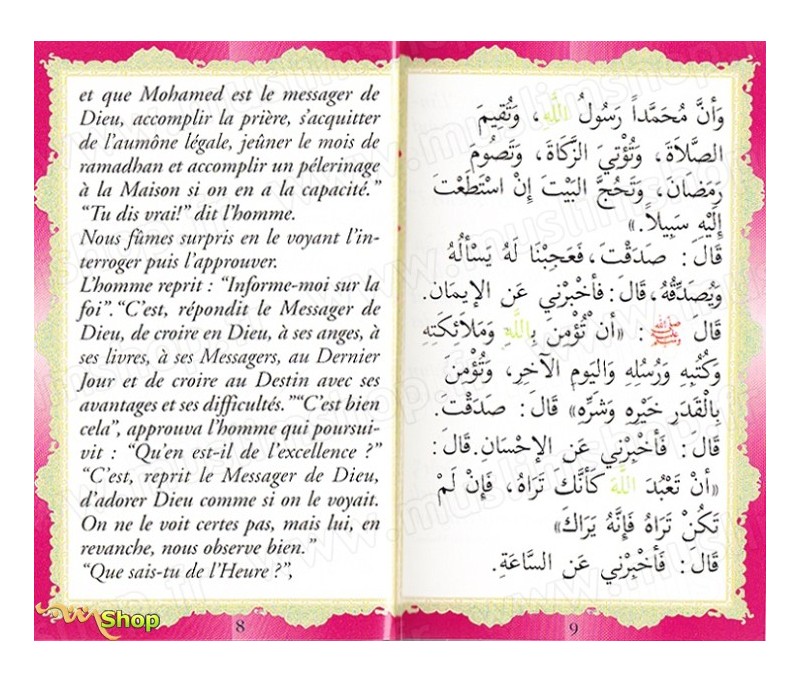 et que Mohamed est le messager de
Dieu, accomplir la prière, s'acquitter
de l'aumône légale, jeûner le mois de
ramadhan et accomplir un pélerinage
à la Maison si on en a la capacité."
"Tu dis vrai!" dit l'homme.
Nous fûmes surpris en le voyant l'in-
terroger puis l'approuver.
L'homme reprit : "Informe-moi sur la
foi"."C'est, répondit le Messager de
Dieu, de croire en Dieu, à ses anges, à
ses livres, à ses Messagers, au Dernier
Jour et de croire au Destin avec ses
avantages et ses difficultés.""C'est bien
cela", approuva l'homme qui poursui-
vit : "Qu'en est-il de l'excellence ?"
"C'est, reprit le Messager de Dieu,
d'adorer Dieu comme si on le voyait.
On ne le voit certes pas, mais lui, en
revanche, nous observe bien."
"Que sais-tu de l'Heure ?",
8
وَأَنَّ مُحَمَّداً رَسُولُ اللَّهِ، وَتُقِيمَ
الصَّلاَةَ، وَتُؤْتِيَ الزَّكَاةَ، وَتَصُومَ
رَمَضَانَ، وَتَحُجَّ الْبَيْتَ إِنْ اسْتَطَعْتَ
إِلَيْهِ سَبِيلاً.»
قَالَ: صَدَقْتَ، فَعَجِبْنَا لَهُ يَسْأَلُهُ
وَيُصَدِّقُهُ، قَالَ: فَأَخْبِرْنِي عَنِ الإِيمَانِ.
قَالَ ﷺ: «أَنْ تُؤْمِنَ بِاللَّهِ وَمَلاَئِكَتِهِ
وَكُتُبِهِ وَرُسُلِهِ وَالْيَومِ الآخِرِ، وَتُؤْمِنَ
بِالْقَدَرِ خَيْرِهِ وَشَرِّهِ» قَالَ: صَدَقْتَ.
قَالَ: فَأَخْبِرْنِي عَنِ الإِحْسَانِ. قَالَ:
«أَنْ تَعْبُدَ اللَّهَ كَأَنَّكَ تَرَاهُ، فَإِنْ لَمْ
تَكُنْ تَرَاهُ فَإِنَّهُ يَرَاكَ»
قَالَ: فَأَخْبِرْنِي عَنِ السَّاعَةِ.
9
Shop